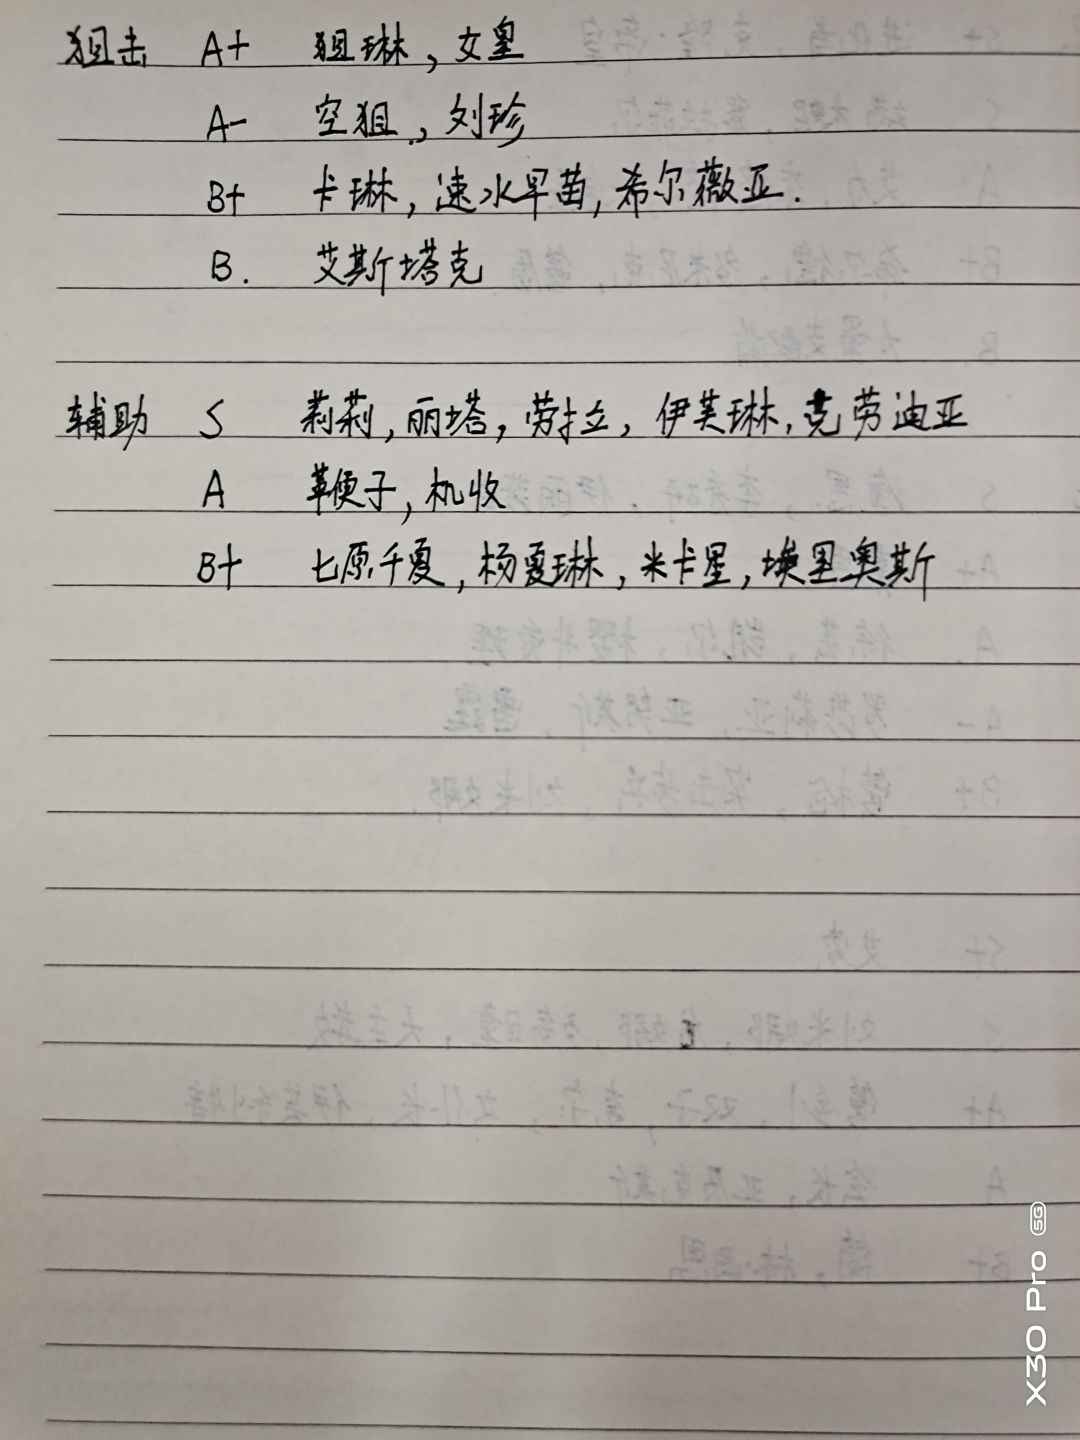 狙击 A+ 狙琳，女皇
A- 空狙，刘珍
B+ 卡琳，速水早苗，希尔薇亚.
B. 艾斯塔克
辅助 S 莉莉，丽塔，劳拉，伊芙琳，克劳迪亚
A 鞭子，机收
B+ 七原千夏，杨夏琳，米卡星，埃里奥斯
X30 Pro 5G